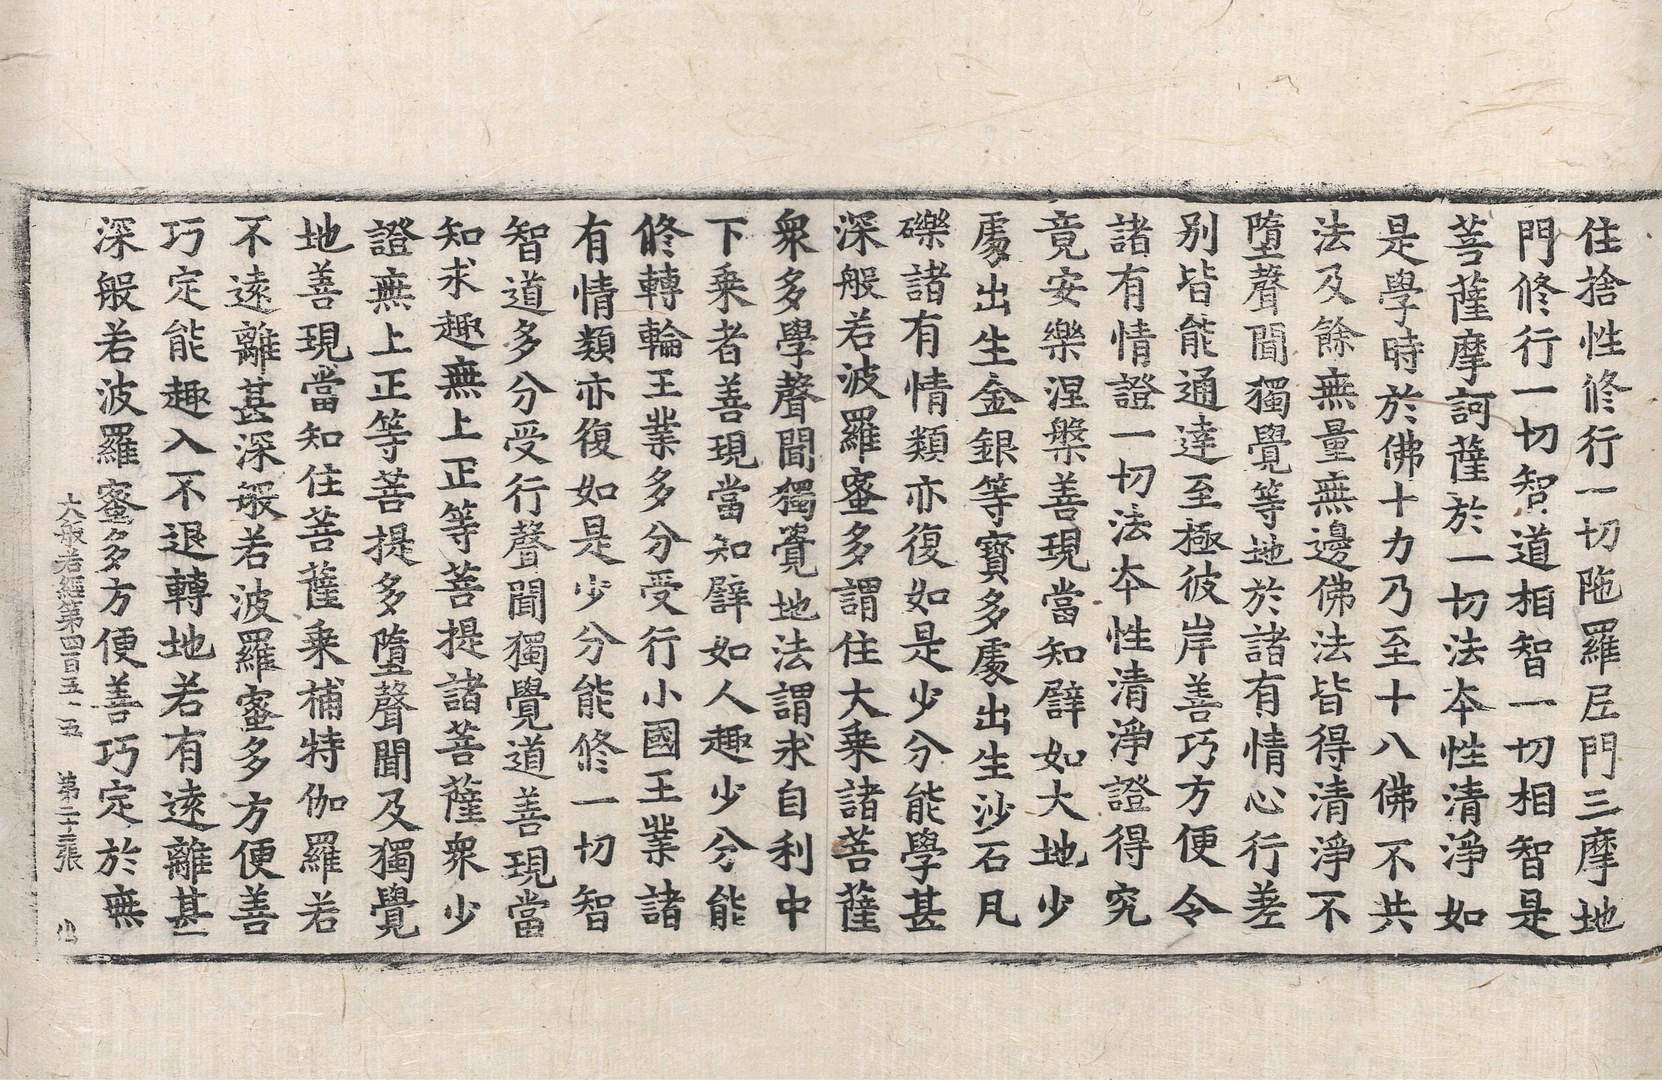 住捨性修行一切陁羅尼門三摩地
門修行一切智道相智一切相智是
菩薩摩訶薩於一切法夲性清淨如
是學時於佛十力乃至十八佛不共
法及餘無量無邊佛法皆得清淨不
墮聲聞獨覺等地於諸有情心行差
別皆能通達至極彼岸善巧方便令
諸有情證一切法夲性清淨證得究
竟安樂涅槃善現當知譬如大地少
處出生金銀等寶多處出生沙石凡
礫諸有情類亦復如是少分能學甚
深般若波羅蜜多謂住大乘諸菩薩
衆多學聲聞獨覺地法謂求自利中
下乘者善現當知譬如人趣少分能
修轉輪王業多分受行小國王業諸
有情類亦復如是少分能修一切智
智道多分受行聲聞獨覺道善現當
知求趣無上正等菩提諸菩薩衆少
證無上正等菩提多墮聲聞及獨覺
地善現當知住菩薩乘補特伽羅若
不遠離甚深般若波羅蜜多方便善
巧定能趣入不退轉地若有遠離甚
深般若波羅蜜多方便善巧定於無
大般若經第四百五十五 第二十三張